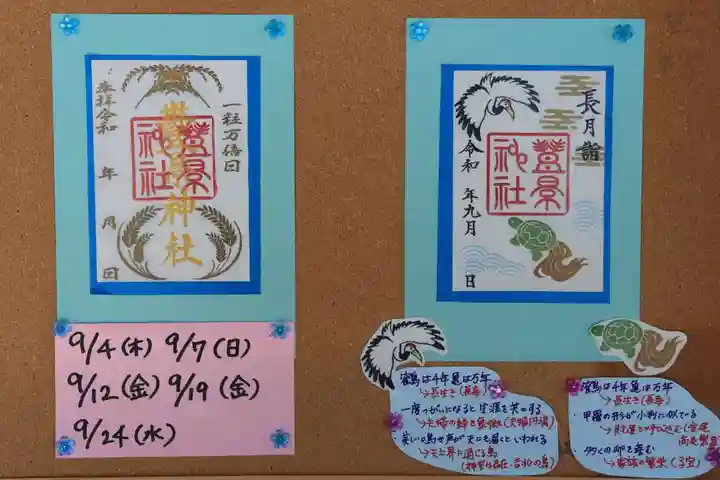 一粒万倍日
奉拝 令和 年 月 日
豊景神社
9/4(木) 9/7(日)
9/12(金) 9/19(金)
9/24(水)
長月詣
豊景神社
令和 年九月 日
鶴は千年亀は万年
→長生き(長寿)
一度つがいになると生涯を共にする
→夫婦の絆を象徴(夫婦円満)
・美しい鳴き声が天にも届くといわれる
→天上界に通じる鳥
鶴は千年亀は万年
→長生き(長寿)
・甲羅の形が小判に似ている
・多くの卵を産む
→家族の繁栄(子宝)